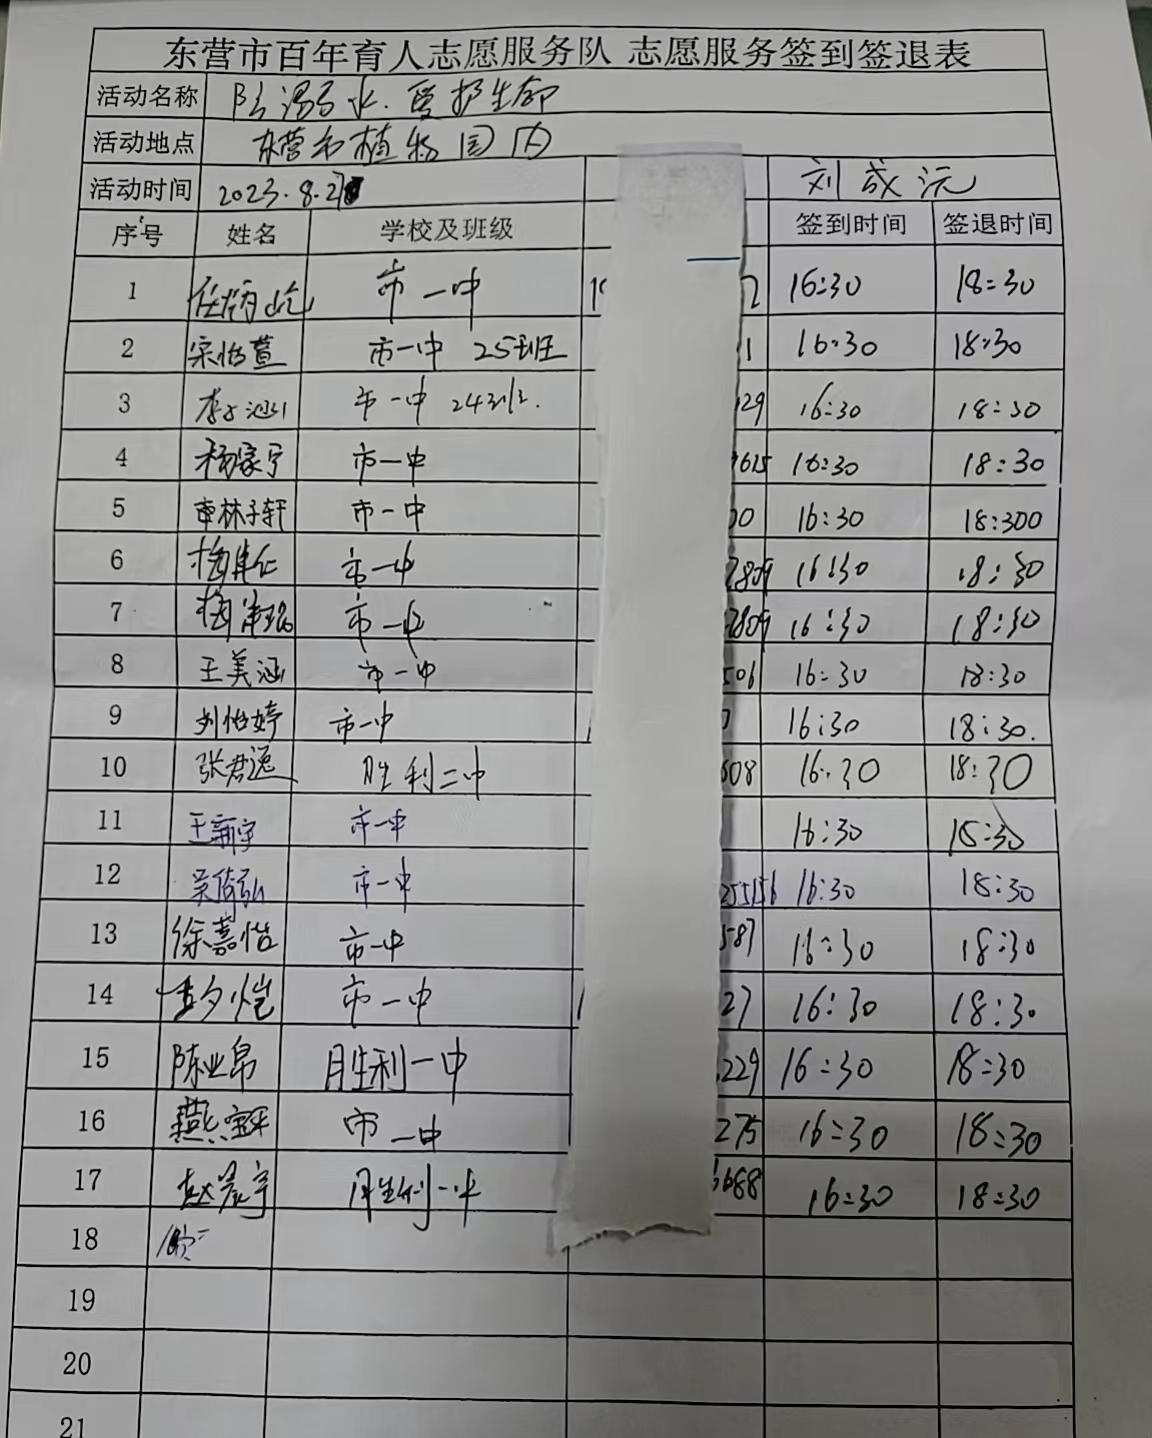 东营市百年育人志愿服务队 志愿服务签到签退表
活动名称 防溺水.爱护生命
活动地点 东营市植物园内
活动时间 2023.8.27 刘成沅
序号 姓名 学校及班级 签到时间 签退时间
1 市一中 16:30 18:30
2 宋怡萱 市一中 25班 1 16:30 18:30
3 李 市一中 24班. 129 16:30 18:30
4 杨家宁 市一中 1615 16:30 18:30
5 林子轩 市一中 00 16:30 18:300
6 市一中 2809 16:30 18:30
7 市一中 2809 16:30 18:30
8 王美涵 市一中 506 16:30 18:30
9 刘怡婷 市一中 16:30 18:30.
10 张君逸 胜利二中 608 16:30 18:30
11 王新宇 市一中 16:30 18:30
12 吴 市一中 255156 16:30 18:30
13 徐嘉怡 市一中 587 16:30 18:30
14 市一中 27 16:30 18:30
15 陈业帛 胜利一中 229 16:30 18:30
16 燕 市一中 275 16:30 18:30
17 赵晨宇 胜利一中 6688 16:30 18:30
18
19
20
21